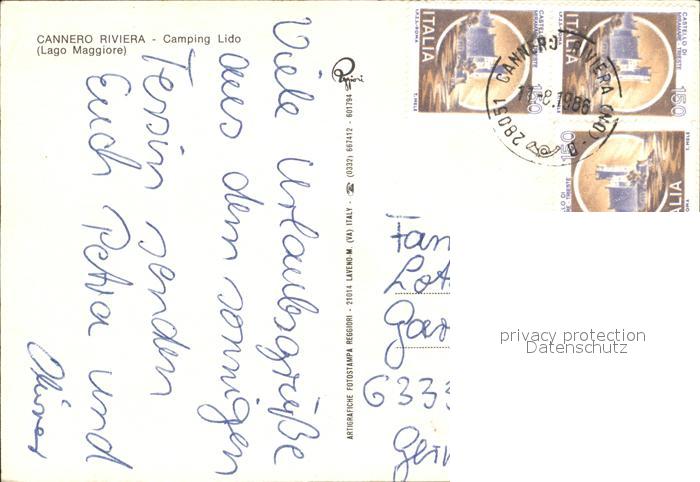 CANNERO RIVIERA - Camping Lido
(Lago Maggiore)
Viele Urlaubsgrüße
aus dem sonnigen
Tessin senden
Euch Petra und
Reggiori
ARTIGRAFICHE FOTOSTAMPA REGGIORI - 21014 LAVENO-M. (VA) ITALY - ☎ (0332) 667412 - 601794
ITALIA
CASTELLO DI
MIRAMARE TRIESTE
150
I.P.Z.S. ROMA
ITALIA
CASTELLO DI
MIRAMARE TRIESTE
150
150
ITALIA
28051 CANNERO RIVIERA (NO)
11-8.1986
Fam
Lot
Gar
633
Ger
privacy protection
Datenschutz